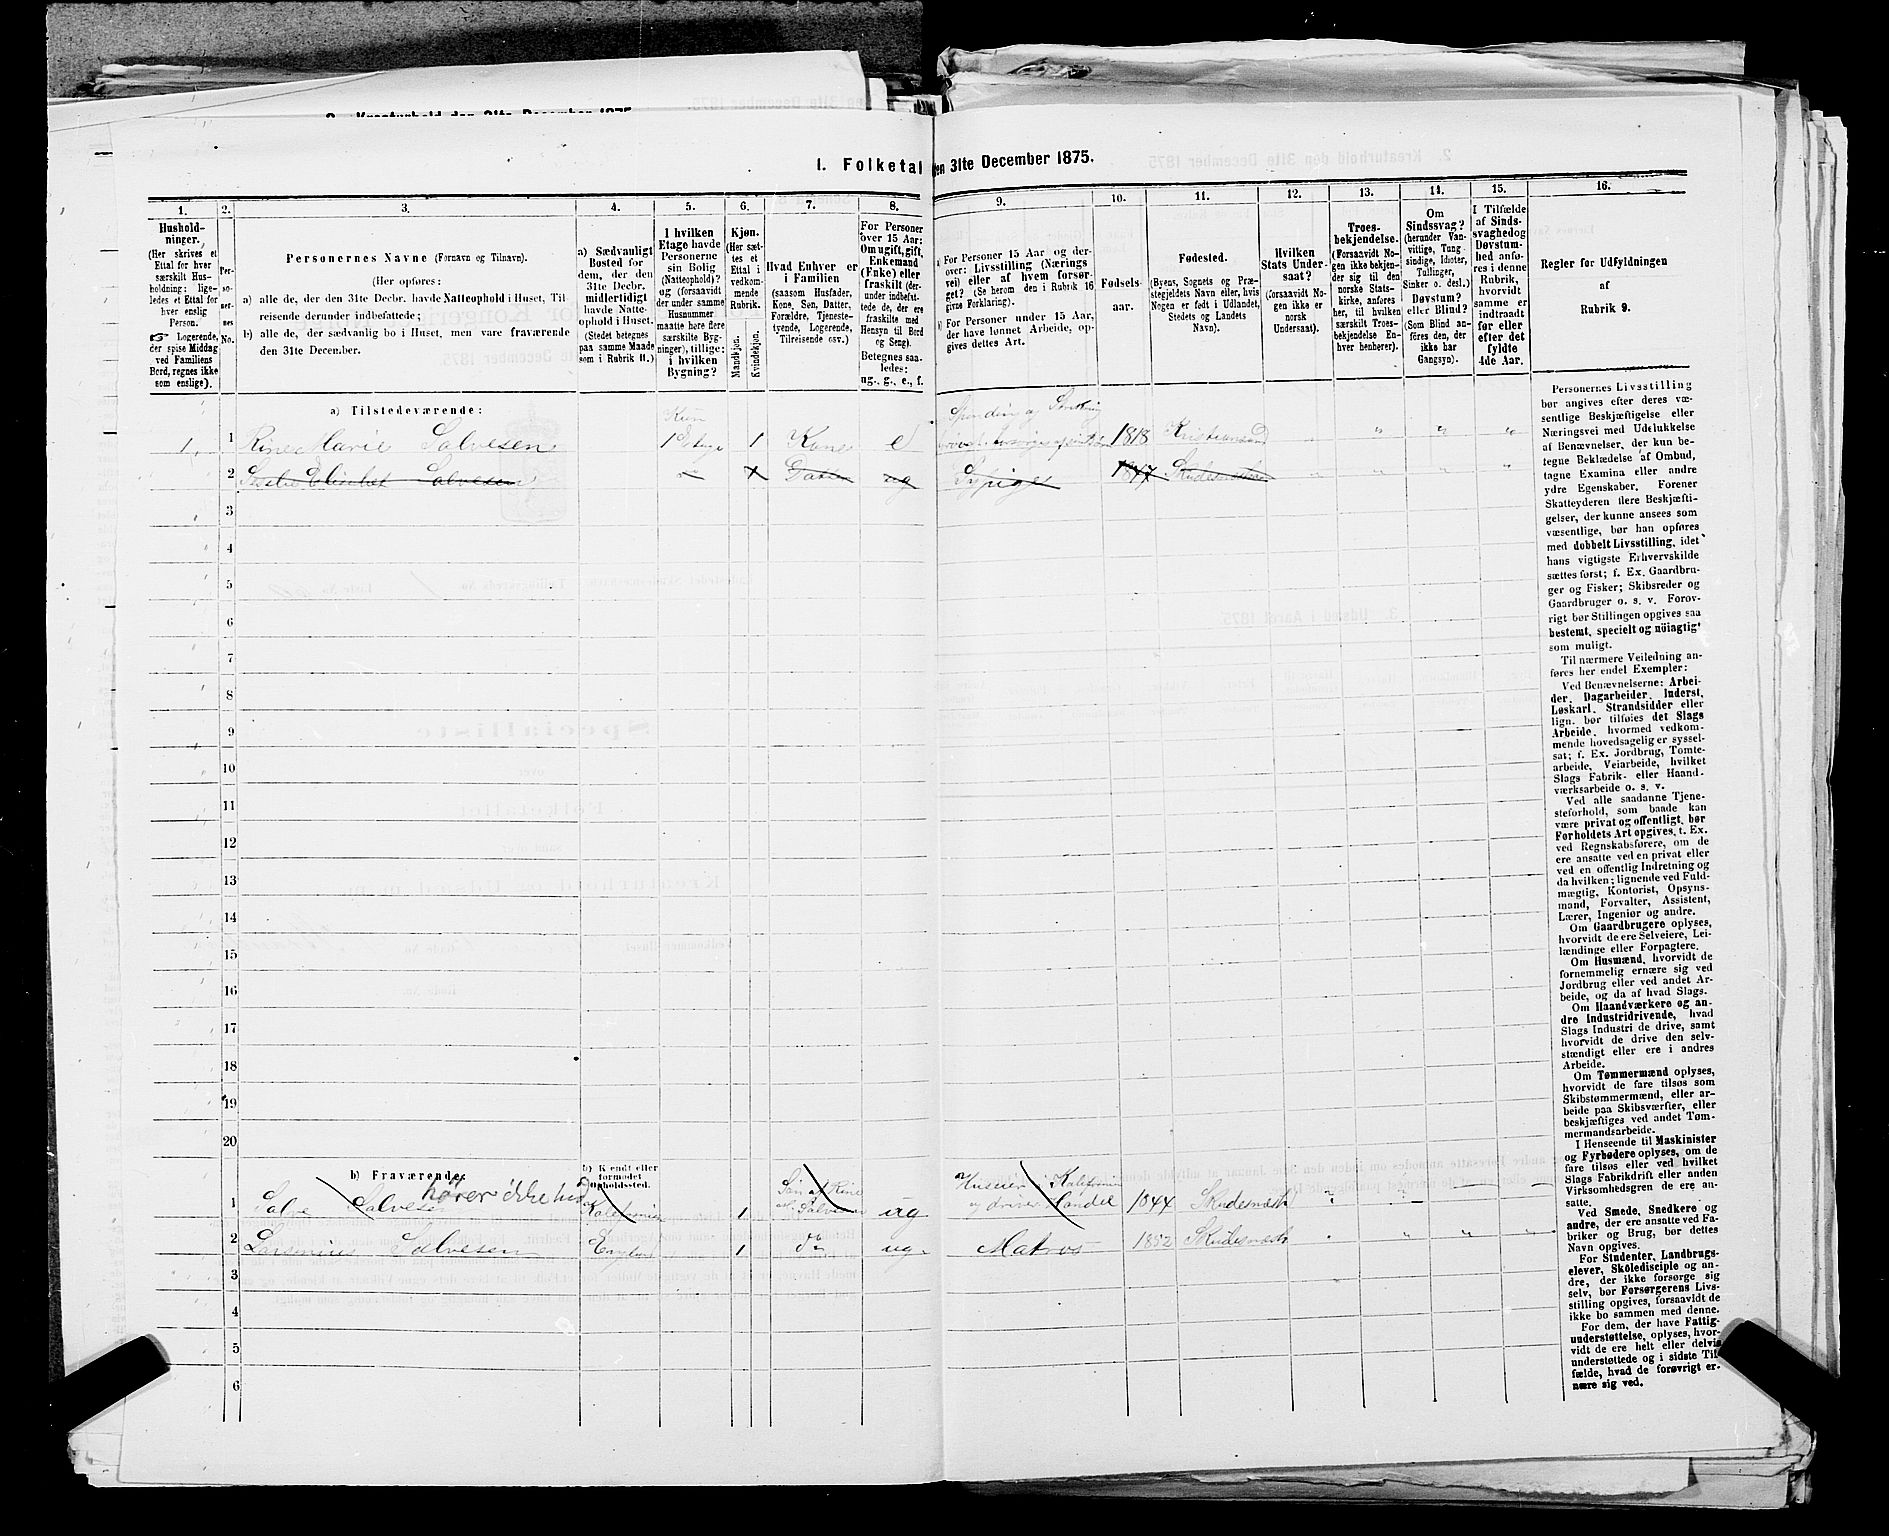 2. Kreaturhold den 31te December 1875.
1. Folketal den 31te December 1875.
1.
2.
3.
4.
5.
6.
7.
8.
9.
10.
11.
12.
13.
14.
15.
16.
Hushold-
ninger.
(Her skrives et
Ettal for hver
særskilt Hus-
holdning; lige-
ledes et Ettal for
hver enslig
Person.
☞ Logerende,
der spise Middag
ved Familiens
Bord, regnes ikke
som enslige).
Per-
so-
ner-
nes
No.
Personernes Navne (Fornavn og Tilnavn).
(Her opføres:
a) alle de, der den 31te Decbr. havde Natteophold i Huset, Til-
reisende derunder indbefattede;
b) alle de, der sædvanlig bo i Huset, men vare fraværende
den 31te December.
a) Sædvanligt
Bosted for
dem, der den
31te Decbr.
midlertidigt
havde Natte-
ophold i Huset.
(Stedet betegnes
paa samme Maade
som i Rubrik 11.)
I hvilken
Etage havde
Personerne
sin Bolig
(Natteophold)?
og (forsaavidt
der under samme
Husnummer
maatte høre flere
særskilte Byg-
ninger), tillige:
i hvilken
Bygning?
Kjøn.
(Her sæt-
tes et
Ettal i
vedkom-
mende
Rubrik.
Mandkjøn.
Kvindekjøn.
Hvad Enhver er
i Familien
(saasom Husfader,
Kone, Søn, Datter,
Forældre, Tjeneste-
tyende, Logerende,
Tilreisende osv.)
For Personer
over 15 Aar:
Om ugift, gift,
Enkemand
(Enke) eller
fraskilt (der-
under indbefat-
tede de, der ere
fraskilte med
Hensyn til Bord
og Seng).
Betegnes saa-
ledes:
ug., g., e., f.
a) For Personer 15 Aar og der-
over: Livsstilling (Nærings-
vei) eller af hvem forsør-
get? (Se herom den i Rubrik 16
givne Forklaring).
b) For Personer under 15 Aar,
der have lønnet Arbeide, op-
gives dettes Art.
Fødsels-
aar.
Fødested.
(Byens, Sognets og Præ-
stegjeldets Navn eller, hvis
Nogen er født i Udlandet,
Stedets og Landets
Navn).
Hvilken
Stats Under-
saat?
(forsaavidt No-
gen ikke er
norsk
Undersaat).
Troes-
bekjendelse.
(Forsaavidt No-
gen ikke bekjen-
der sig til den
norske Stats-
kirke, anføres
her, til hvilken
særskilt Troes-
bekjendelse En-
hver henhører).
Om
Sindssvag?
(herunder Van-
vittige, Tung-
sindige, Idioter,
Tullinger,
Sinker o. desl.)
Døvstum?
eller Blind?
(Som Blind an-
føres den, der
ikke har
Gangsyn).
I Tilfælde
af Sinds-
svaghed og
Døvstum-
hed anfø-
res i denne
Rubrik,
hvorvidt
samme er
indtraadt
før eller
efter det
fyldte
4de Aar.
Regler for Udfyldningen
af
Rubrik 9.
a) Tilstedeværende:
1. 1 Rine Marie Salvesen 1 Etage 1 Kone e 1818 Kristiansand
2 Elisabet Salvesen Datter ug Sypige 1847 Skudesnæshavn
3
4
5
6
7
8
9
10
11
12
13
14
15
16
17
18
19
20
b) Fraværende:
b) Kjendt eller
formodet
Opholdssted.
hører ikke hid
1 Salve Salvesen Kalifornien 1 Søn af Rine Salvesen ug Huseier i Kalifornien og driver Handel 1844 Skudesnæsh
2 Larsmius Salvesen England 1 do ug Matros 1852 Skudesnæsh
3
4
5
6
Personernes Livsstilling
bør angives efter deres væ-
sentlige Beskjæftigelse eller
Næringsvei med Udelukkelse
af Benævnelser, der kun be-
tegne Beklædelse af Ombud,
tagne Examina eller andre
ydre Egenskaber. Forener
Skatteyderen flere Beskjæfti-
gelser, der kunne ansees som
væsentlige, bør han opføres
med dobbelt Livsstilling, idet
hans vigtigste Erhvervskilde
sættes først; f. Ex. Gaardbru-
ger og Fisker; Skibsreder og
Gaardbruger o. s. v. Forøv-
rigt bør Stillingen opgives saa
bestemt, specielt og nøiagtigt
som muligt.
Til nærmere Veiledning an-
føres her endel Exempler:
Ved Benævnelserne: Arbei-
der, Dagarbeider, Inderst,
Løskarl, Strandsidder eller
lign. bør tilføies det Slags
Arbeide, hvormed vedkom-
mende hovedsagelig er syssel-
sat; f. Ex. Jordbrug, Tomte-
arbeide, Veiarbeide, hvilket
Slags Fabrik- eller Haand-
værksarbeide o. s. v.
Ved alle saadanne Tjene-
steforhold, som baade kan
være privat og offentligt, bør
Forholdets Art opgives, t. Ex.
ved Regnskabsførere, om de
ere ansatte ved en privat eller
ved en offentlig Indretning og
da hvilken; lignende ved Fuld-
mægtig, Kontorist, Opsyns-
mand, Forvalter, Assistent,
Lærer, Ingeniør og andre.
Om Gaardbrugere oplyses,
hvorvidt de ere Selveiere, Lei-
lændinge eller Forpagtere.
Om Husmænd, hvorvidt de
fornemmelig ernære sig ved
Jordbrug eller ved andet Ar-
beide, og da af hvad Slags.
Om Haandværkere og an-
dre Industridrivende, hvad
Slags Industri de drive, samt
hvorvidt de drive den selv-
stændigt eller ere i andres
Arbeide.
Om Tømmermænd oplyses,
hvorvidt de fare tilsøs som
Skibstømmermænd, eller ar-
beide paa Skibsværfter, eller
beskjæftiges ved andet Tøm-
mermandsarbeide.
I Henseende til Maskinister
og Fyrbødere oplyses, om de
fare tilsøs eller ved hvilket
Slags Fabrikdrift eller anden
Virksomhedsgren de ere an-
satte.
Ved Smede, Snedkere og
andre, der ere ansatte ved Fa-
briker og Brug, bør dettes
Navn opgives.
For Studenter, Landbrugs-
elever, Skoledisciple og an-
dre, der ikke forsørge sig
selv, bør Forsørgerens Livs-
stilling opgives, forsaavidt de
ikke bo sammen med denne.
For dem, der have Fattig-
understøttelse, oplyses, hvor-
vidt de ere helt eller delvis
understøttede og i sidste Til-
fælde, hvad de forøvrigt er-
nære sig ved.